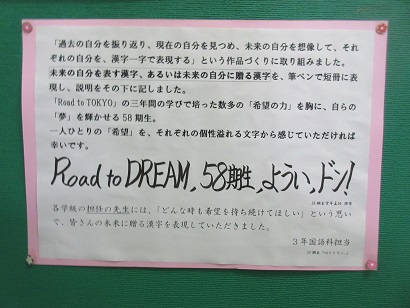 「過去の自分を振り返り、現在の自分を見つめ、未来の自分を想像して、それ
ぞれの自分を、漢字一字で表現する」という作品づくりに取り組みました。
未来の自分を表す漢字、あるいは未来の自分に贈る漢字を、筆ペンで短冊に表
現し、説明をその下に記しました。
「Road to TOKYO」の三年間の学びで培った数多の「希望の力」を胸に、自らの
「夢」を輝かせる 58 期生。
一人ひとりの「希望」を、それぞれの個性溢れる文字から感じていただければ
幸いです。
Road to DREAM, 58期生, ようい、ドン!
各学級の担任の先生には、「どんな時も希望を持ち続けてほしい」という思い
で、皆さんの未来に贈る漢字を表現していただきました。
3年国語科担当